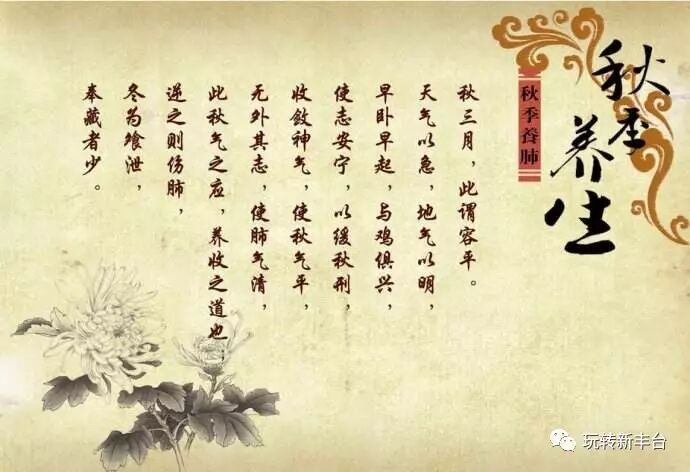 秋季
养生
秋季养肺
秋三月，此谓容平。
天气以急，地气以明，
早卧早起，与鸡俱兴，
使志安宁，以缓秋刑，
收敛神气，使秋气平，
无外其志，使肺气清，
此秋气之应，养收之道也，
逆之则伤肺，
冬为飧泄，
奉藏者少。
玩转新丰台